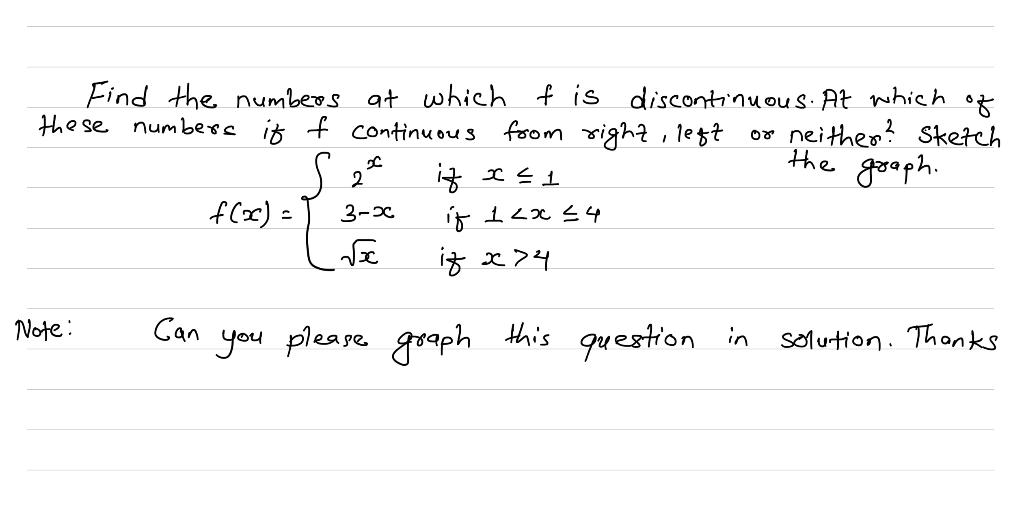 Find the numbers at which f is discontinuous. At which of
these numbers if f continuous from right, left or neither? Sketch
the graph.
f(x) = { 2^x if x ≤ 1
3-x if 1 < x ≤ 4
√x if x > 4
Note: Can you please graph this question in solution. Thanks